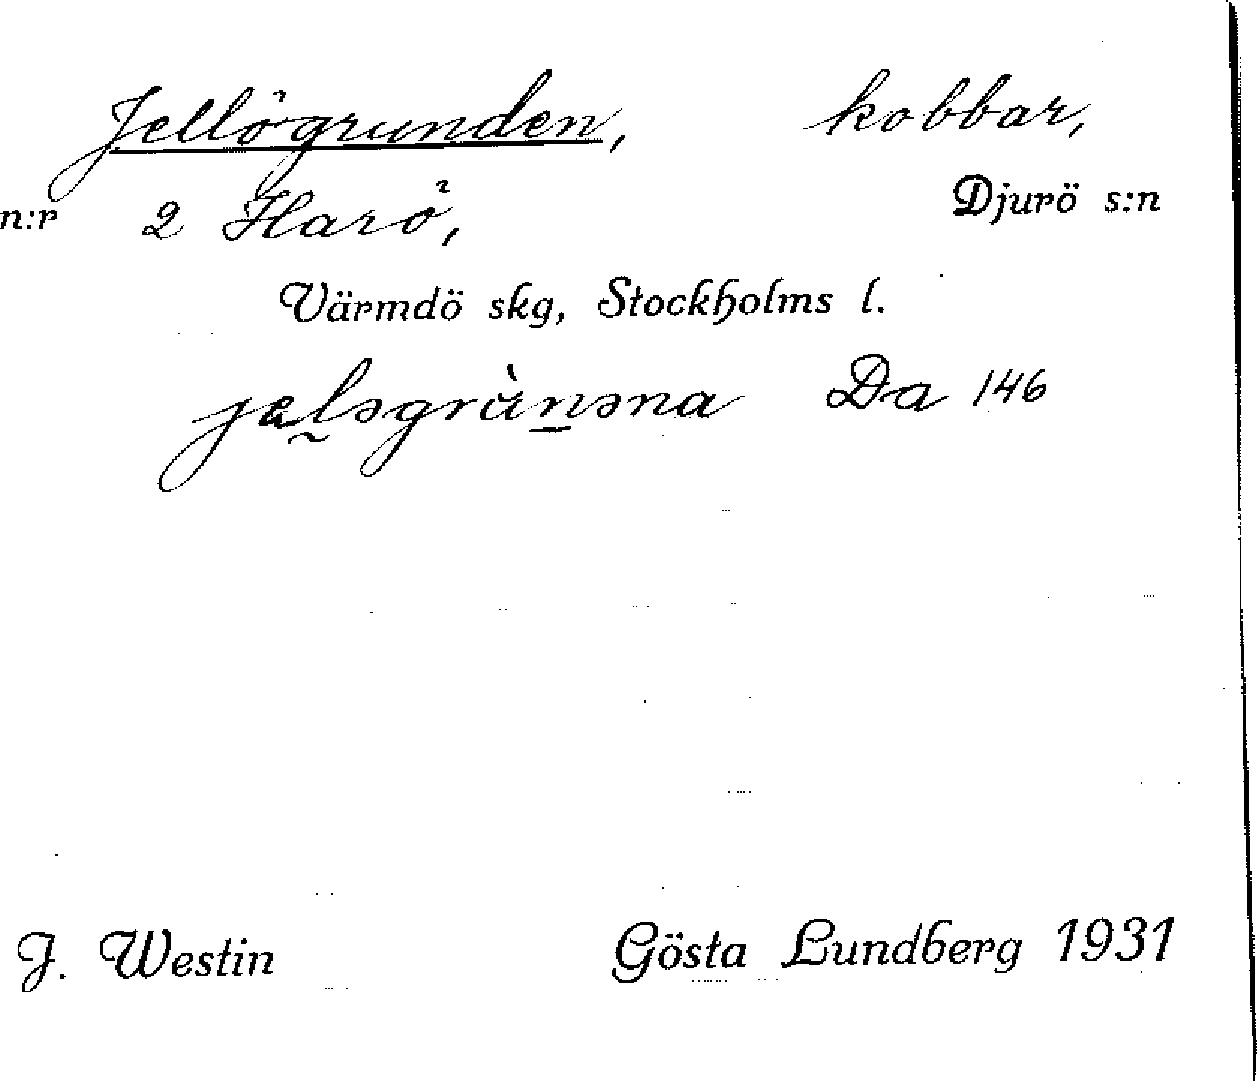 Jellögrunden, kobbar,
n:r 2 Harö, Djurö s:n
Värmdö skg, Stockholms l.
jeləgrùnəna Da 146
J. Westin Gösta Lundberg 1931